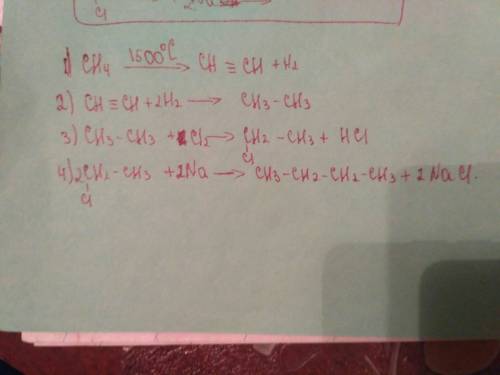 Cl 2Na
1) CH4 1500°C → CH ≡ CH + H2
2) CH ≡ CH + 2H2 → CH3 - CH3
3) CH3 - CH3 + Cl2 → CH2 - CH3 + HCl
Cl
4) 2CH2 - CH3 + 2Na → CH3 - CH2 - CH2 - CH3 + 2NaCl.
Cl